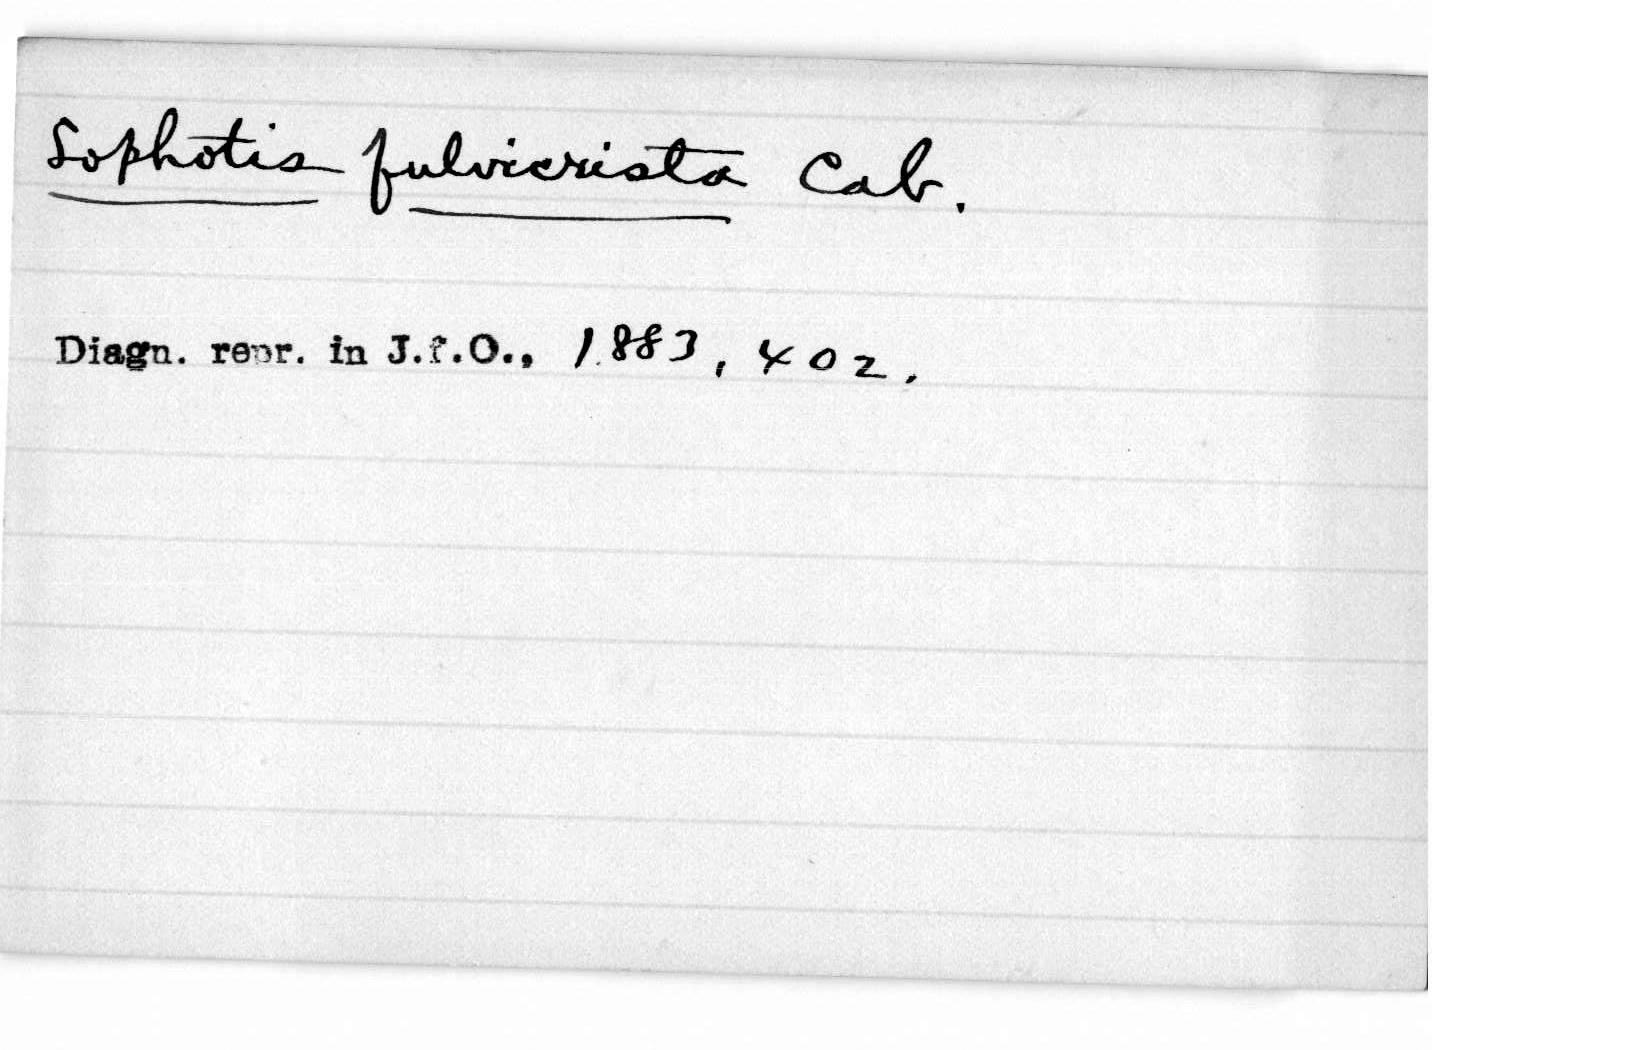 Lophotis fulvicrista Cab.
Diagn. repr. in J.f.O., 1883, 402.